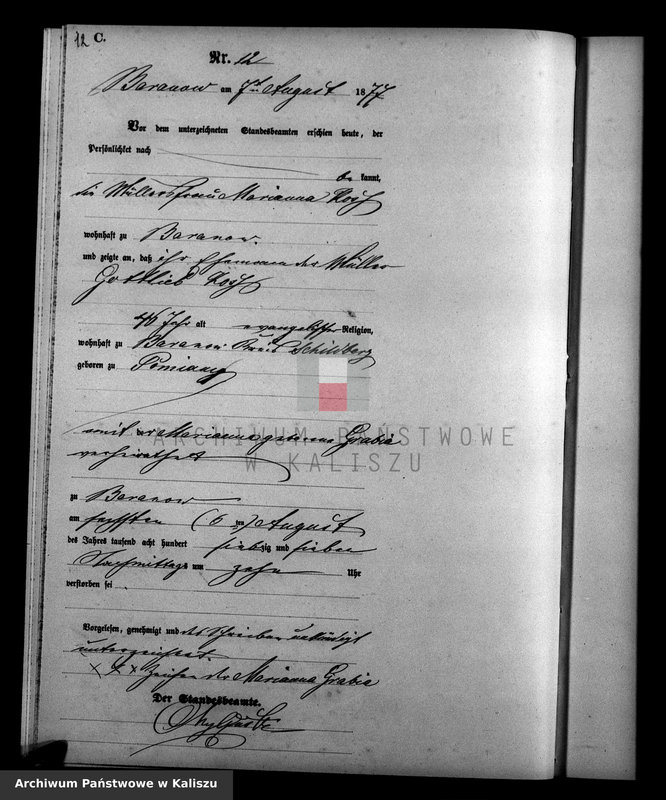 12 C.
Nr. 12
Baranow am 7ten August 1877
Vor dem unterzeichneten Standesbeamten erschien heute, der
Persönlichkeit nach
be kannt,
die Müllersfrau Marianna Koch
wohnhaft zu Baranow.
und zeigte an, daß ihr Ehemann der Müller
Gottlieb Koch
46 Jahr alt evangelischer Religion,
wohnhaft zu Baranow Kreis Schildberg
geboren zu
mit Marianna geborene Grabia
verheirathet
ARCHIWUM PAŃSTWOWE
W KALISZU
zu Baranow
am sechsten (6 ten) August
des Jahres tausend acht hundert siebzig und sieben
Nachmittags um zehn Uhr
verstorben sei.
Vorgelesen, genehmigt und des Schreibens unkündig
unterzeichnet.
x x x Zeichen der Marianna Grabia
Der Standesbeamte.
Archiwum Państwowe w Kaliszu